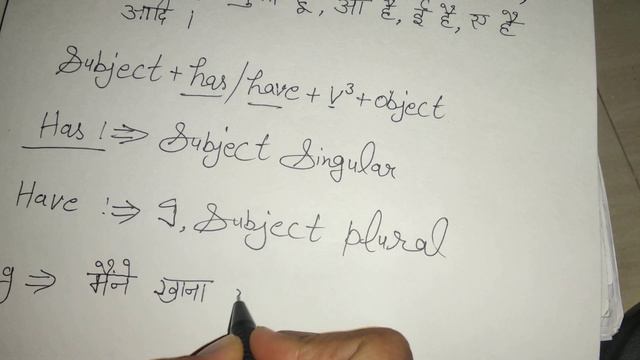 आदि ।, आ है, ई है, ए है
Subject + has/have + V³ + object
Has !⇒ Subject Singular
Have !⇒ I, Subject plural
g ⇒ मैंने खाना